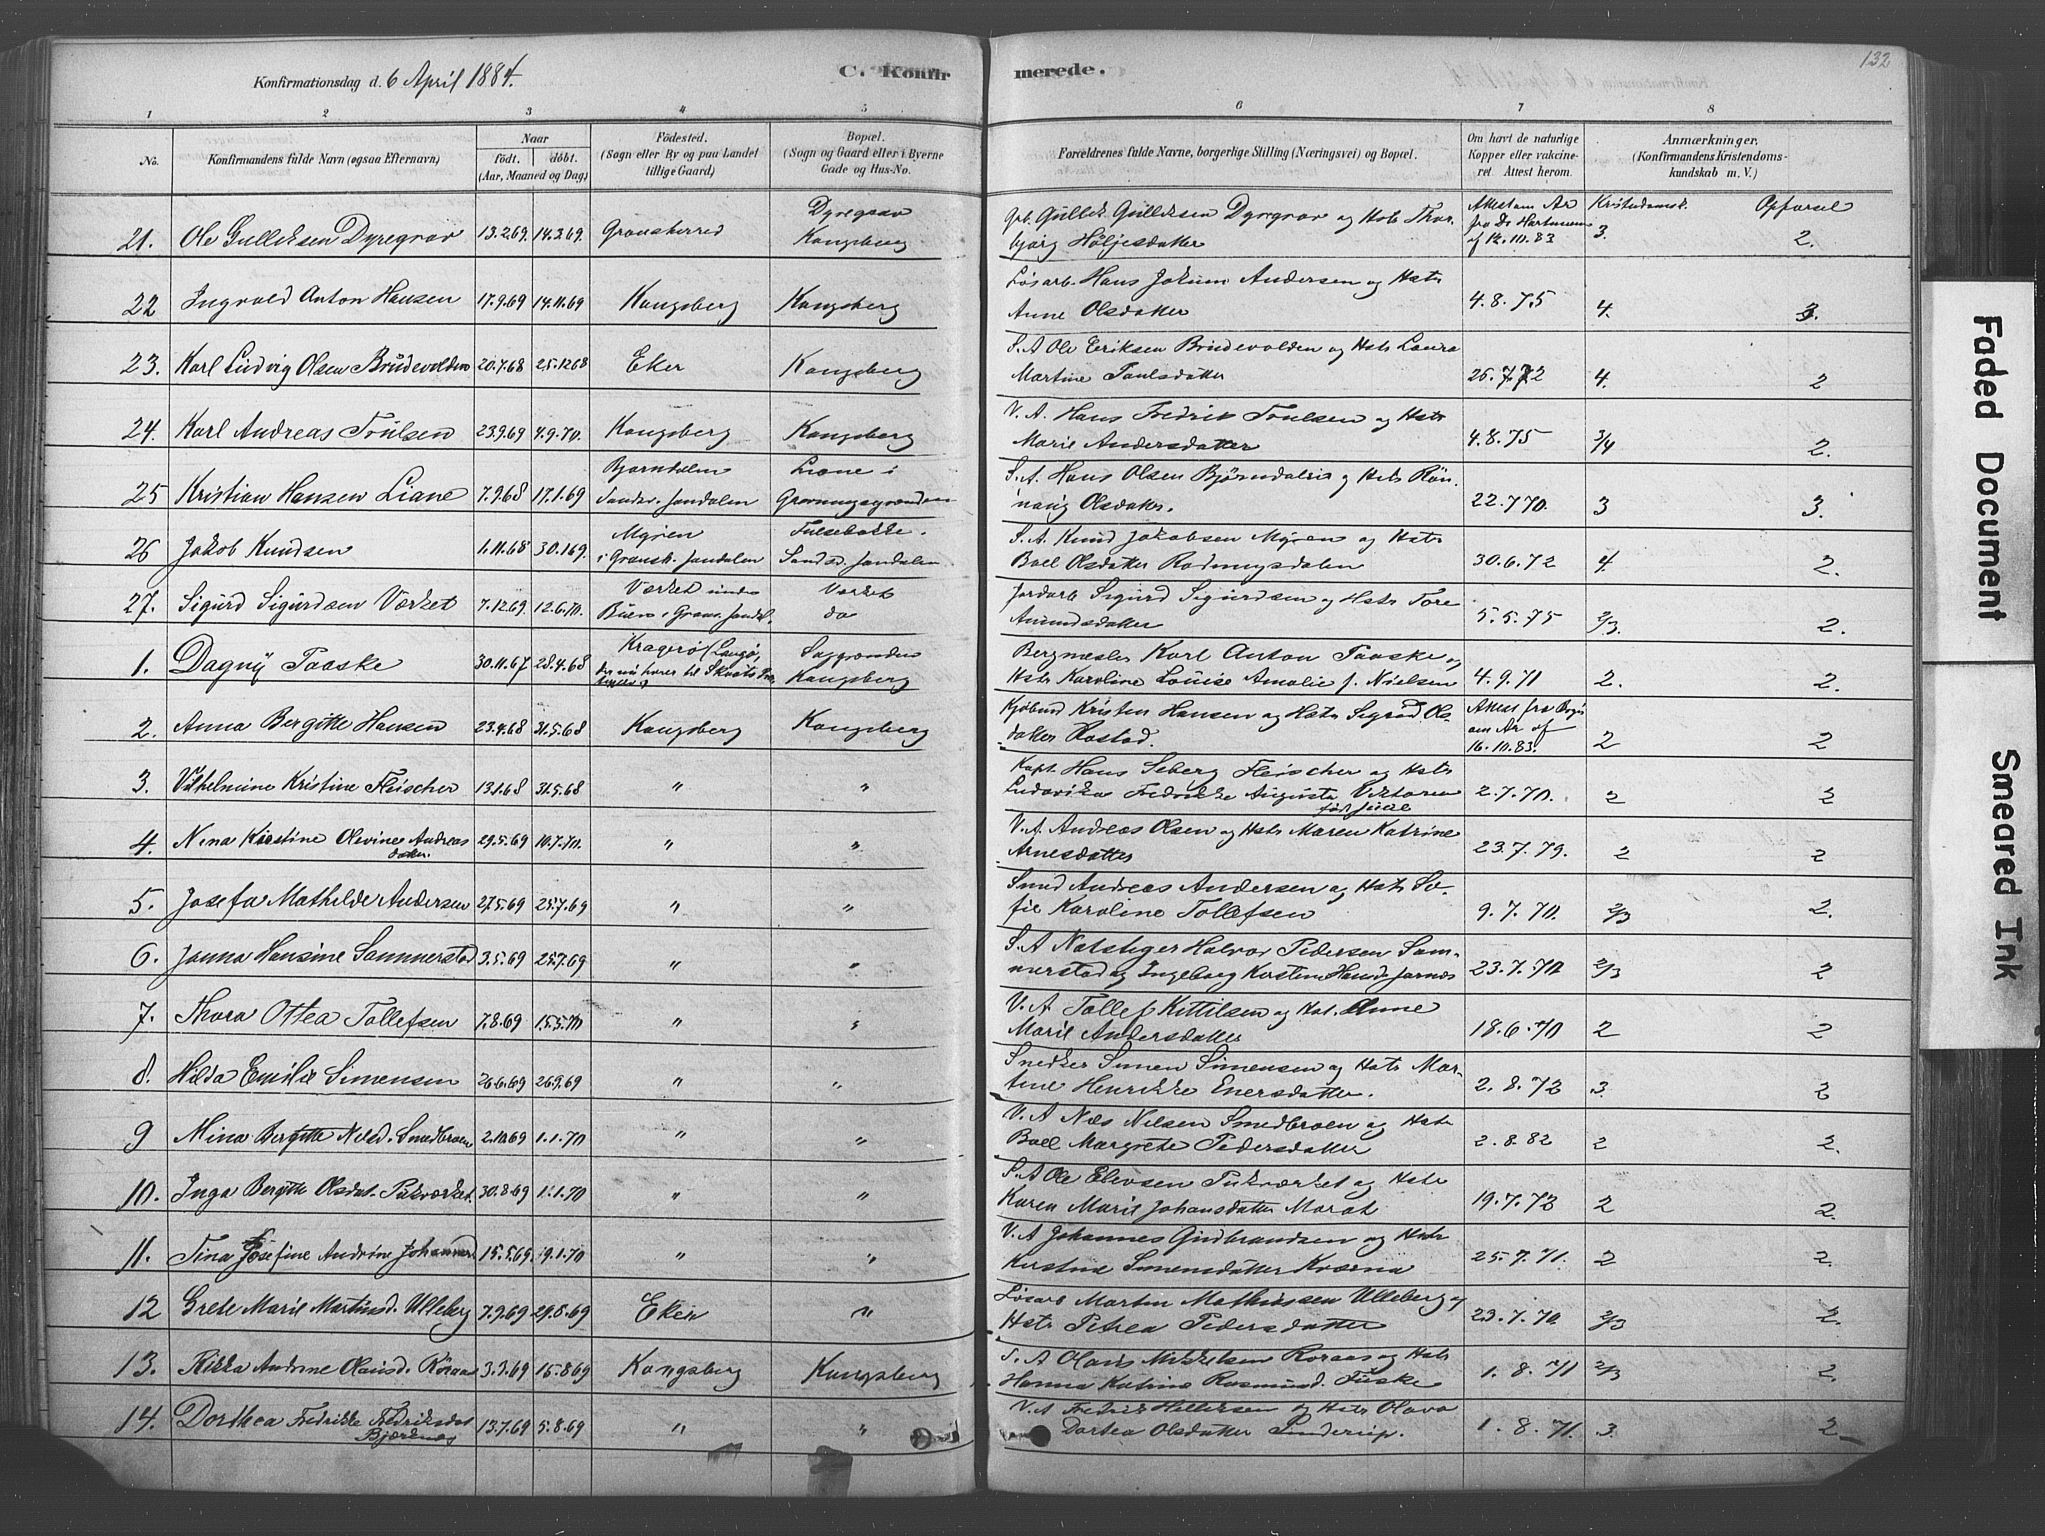 132
Konfirmationsdag d. 6 April 1884.
C. Konfirmerede.
1 2 3 4 5 6 7 8
No.
Konfirmandens fulde Navn (ogsaa Efternavn)
Naar
født. døbt.
(Aar, Maaned og Dag)
Fødested.
(Sogn eller By og paa Landet
tillige Gaard)
Bopæl.
(Sogn og Gaard eller i Byerne
Gade og Hus-No.
Forældrenes fulde Navne, borgerlige Stilling (Næringsvei) og Bopæl.
Om havt de naturlige
Kopper eller vakcine-
ret. Attest herom.
Anmærkninger.
(Konfirmandens Kristendoms-
kundskab m. V.)
Kristendomsk. Opførsel
21. Ole Gulleksen Dyregrav 13.2.69. 14.3.69. Gransherred Dyregrav Kongsberg Gullik Gulliksen Dyregrav og Hstr Thorbjørg Høljesdatter Attest om Ar fra Dr Hartmann af 12.10.83 3. 2.
22 Ingvald Anton Hansen 17.9.69 14.11.69 Kongsberg Kongsberg Løsarb. Hans Jokum Andersen og Hstr Anne Olsdatter 4.8.75 4. 3.
23. Karl Ludvig Olsen Brudevolden 20.7.68 25.12.68 Eker Kongsberg S.A Ole Eriksen Brudevolden og Hstr Laura Martine Paulsdatter 26.7.72 4. 2
24. Karl Andreas Poulsen 23.9.69 4.9.70. Kongsberg Kongsberg V.A. Hans Fredrik Poulsen og Hstr Marie Andersdatter 4.8.75 3/4 2.
25 Kristian Hansen Liane 7.9.68 17.1.69 Bjørndalen Sandsv. Jondalen Liane i S.A. Hans Olsen Bjørndalen og Hstr Rønnaug Olsdatter. 22.7.70. 3 3.
26 Jakob Knudsen 1.11.68 30.1.69. Myren i Gransh. Jondalen Sandsv. Jondalen S.A. Knud Jakobsen Myren og Hstr Boel Olsdatter 30.6.72 4. 2.
27. Sigurd Sigurdsen Værket 7.12.69. 12.6.70. Værket under Værket do Jordarb Sigurd Sigurdsen og Hstr Tore Amundsdatter 5.5.75 2/3. 2.
1. Dagny Paaske 30.11.67 28.4.68 Kragerø Kongsberg Bergmester Karl Anton Paaske og Hstr Karoline Louise Amalie f. Nielsen 4.9.71 2. 2.
2. Anna Bergitte Hansen 23.4.68 31.5.68 Kongsberg Kongsberg Kristen Hansen og Hstr Sigrid Olsdatter Attest fra om Ar af 16.10.83. 2 2
3. Vilhelmine Kristine Fleischer 13.1.68 31.5.68 " " Kapt. Hans Seberg Fleischer og Hstr Ludovika Fredrikke Augusta Viktoria født Juell 2.7.70. 2 2
4. Nina Kirstine Olevine Andreasdatter 29.5.69 10.7.70. " " V.A. Andreas Olsen og Hstr Maren Katrine Arnesdatter 23.7.79. 2 2
5. Josefa Mathilde Andersen 27.5.69 25.7.69 " " Smed Andreas Andersen og Hstr Sofie Karoline Tollefsen 9.7.70. 2/3 2.
6. Janna Hansine Sommerstad 3.5.69 25.7.69 " " S.A Halvor Pedersen Sommerstad og Ingeborg Kirstine 23.7.70. 2/3 2
7. Thora Ottea Tollefsen 7.8.69 15.5.70 " " V.A Tollef Kittilsen og Hst. Anne Marie Andersdatter 18.6.70 2 2
8. Hilda Emilie Simensen 26.6.69 26.9.69 " " Snedker Simen Simensen og Hstr Martine Henrikke Enersdatter. 2.8.72 3. 2
9 Mina Bergitte Nilsd. Smedbroen 2.10.69 1.1.70 " " V.A Nils Nilsen Smedbroen og Hstr Boel Margrete Pedersdatter 2.8.82 2 2.
10. Inga Bergitte Olsdat. Pukværket 30.8.69 1.1.70 " " S.A Ole Elevsen Pukværket og Hstr Karen Marie Johansdatter 19.7.72 2 2.
11. Tina Josefine Andrine Johannesd 15.5.69. 9.1.70 " " V.A Johannes Gudbrandsen og Hstr Kirstine Simensdatter Kværna 25.7.71. 2 2.
12 Grete Marie Martinsd. Ulleberg 7.9.69 29.8.69 Eker " Løsarb Martin Mathiassen Ulleberg og Hstr Petrea Pedersdatter 23.7.70. 2/3 2.
13. Rikka Andrine Olausd. Roraas 3.3.69 15.8.69 Kongsberg Kongsberg S.A Olaus Mikkelsen Roraas og Hstr Hanna Katrine Rasmusd. 1.8.71 2/3 2.
14. Dorthea Fredrikke Fredriksdat Bjørknes 13.7.69 5.8.69 " " V.A Fredrik Helleksen og Hstr Olava Dortea Olsdatter 1.8.71. 3. 2
Faded Document
Smeared Ink